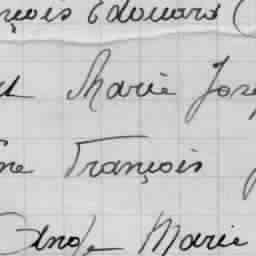 çois Edouard (
Marie Jose
ne François
Ange Marie